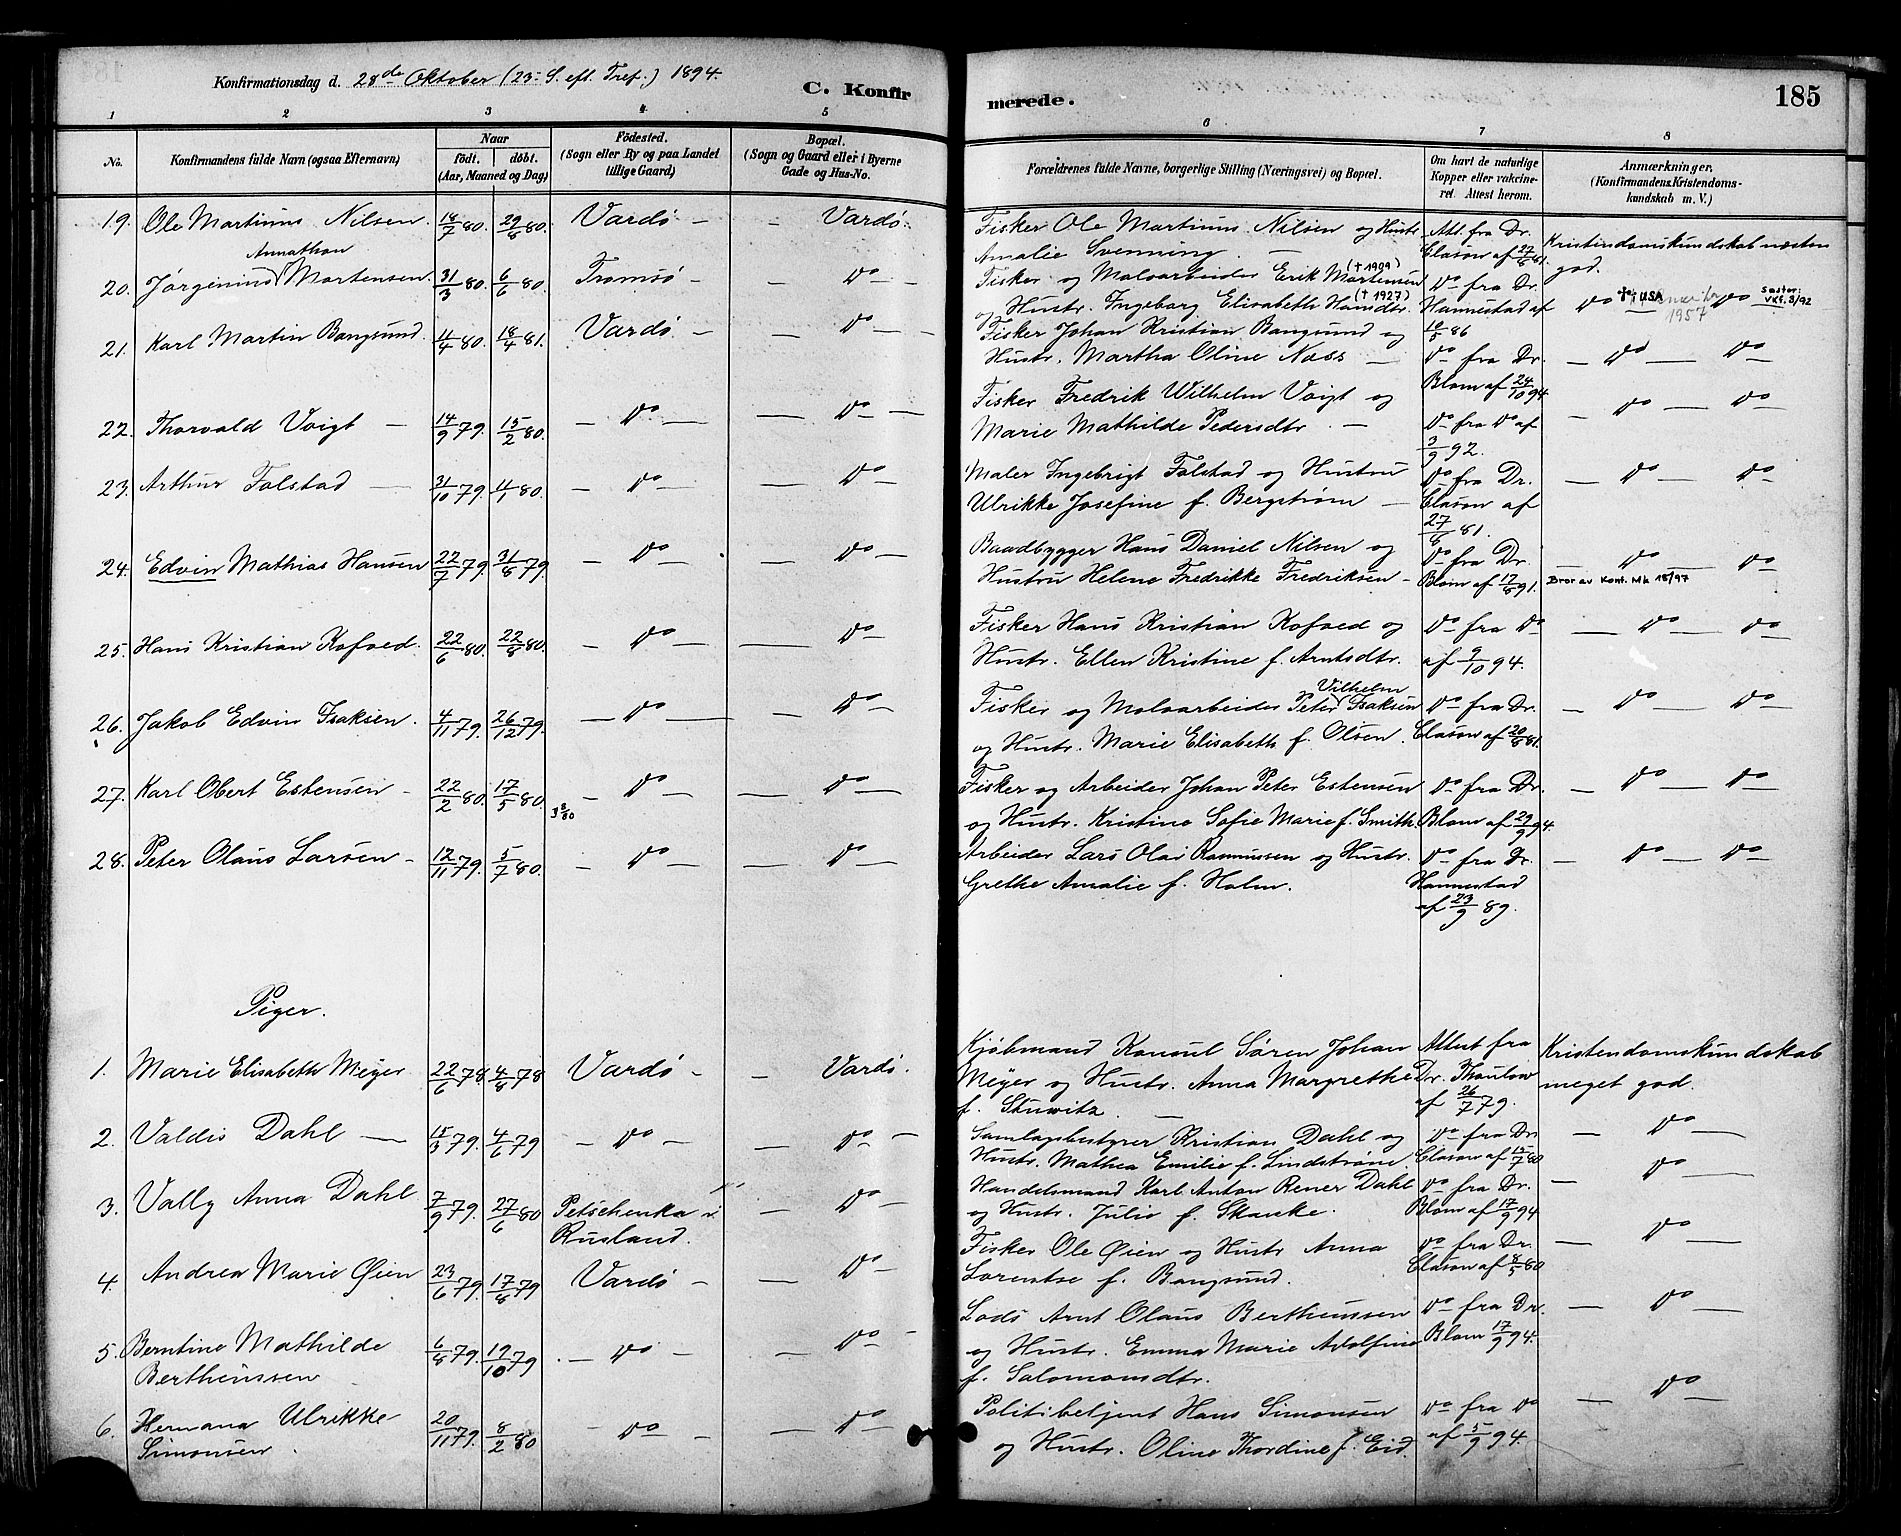 Konfirmationsdag d. 28de Oktober (23. S. eft. Tref.) 1894.
C. Konfirmerede.
185
1 2 3 4 5 6 7 8
No.
Konfirmandens fulde Navn (ogsaa Efternavn)
Naar
födt. döbt.
(Aar, Maaned og Dag)
Födested.
(Sogn eller By og paa Landet
tillige Gaard)
Bopæl.
(Sogn og Gaard eller i Byerne
Gade og Hus-No.
Forældrenes fulde Navne, borgerlige Stilling (Næringsvei) og Bopæl.
Om havt de naturlige
Kopper eller vakcine-
ret. Attest herom.
Anmærkninger,
(Konfirmandens Kristendoms-
kundskab m. V.)
19. Ole Martinus Nilsen 18/7 80. 29/8 80. Vardö – – Vardö. Fisker Ole Martinus Nilsen og Hustr. Att. fra Dr.
Amalie Svenning. – Clason af 22/6 81. Kristendomskundskab næsten god.
Annathon
20. Jörginius Mortensen. 31/3 80. 6/6 80. Tromsö – – Do – Fisker og Malvarbeider Erik Mortensen (†1909) Do fra Dr.
og Hustr. Ingeborg Elisabeth Hansdtr. (†1927) Hannestad af 10/5 86 Do † i USA 1957 Do Søster: Vkf. 3/92
21. Karl Martin Bangsund. 4/4 80. 18/4 81. Vardö – – Do – Fisker Johan Kristian Bangsund og
Hustr. Martha Oline Næss – Do fra Dr. Blom af 24/10 94. – Do – Do –
22. Thorvald Voigt – 14/9 79. 15/2 80. – Do – – Do – Fisker Fredrik Wilhelm Voigt og
Marie Mathilde Pedersdtr. – Do fra Do af 3/9 92. – Do – Do –
23. Arthur Folstad – 31/10 79. 4/1 80. – Do – – Do Maler Ingebrigt Folstad og Hustru
Ulrikke Josefine f. Bergström – Do fra Dr. Clason af 27/6 81. – Do – Do
24. Edvin Mathias Hansen 22/7 79. 31/8 79. – Do – – Do – Baadbygger Hans Daniel Nilsen og
Hustru Helene Fredrikke Fredriksen – Do fra Dr. Blom af 17/6 91. – Do – Do
Bror av Konf. Mk 18/97
25. Hans Kristian Kofoed. 22/6 80. 22/8 80. – Do – – Do Fisker Hans Kristian Kofoed og
Hustr. Ellen Kristine f. Arntsdtr. Do fra Do af 9/10 94. – Do – Do –
26. Jakob Edvin Isaksen. 4/11 79. 26/12 79. – Do – – Do – Fisker og Malvarbeider Peter Vilhelm Isaksen
og Hustr. Marie Elisabeth f. Olsen. Do fra Dr. Clason af 20/6 81. – Do – Do –
27. Karl Obert Estensen – 22/2 80. 17/5 80. – Do – – Do – Fisker og Arbeider Johan Peter Estensen
og Hustr. Kristine Sofie Marie f. Smith. Do fra Dr. Blom af 29/9 94. – Do – Do –
28. Peter Olaus Larsen – 12/11 79. 5/7 80. – Do – – Do – Arbeider Lars Olai Rasmussen og Hustr.
Grethe Amalie f. Holm. Do fra Dr. Hannestad af 23/9 89. – Do – Do –
Piger.
1. Marie Elisabeth Meyer 22/6 78 4/8 78 Vardö – – Vardö. Kjöbmand Konsul Sören Johan
Meyer og Hustr. Anna Margrethe
f. Stuwitz. – Attest fra Dr. Thaulow af 26/7 79. Kristendomskundskab
meget god.
2. Valdis Dahl – 15/3 79. 4/6 79 – Do – – Do – Samlagsbestyrer Kristian Dahl og
Hustr. Mathea Emilie f. Lindström. Do fra Dr. Clason af 15/7 80 – Do –
3. Vally Anna Dahl 7/9 79. 27/6 80 Petschenka i
Rusland. – Do – Handelsmand Karl Anton Rener Dahl
og Hustr. Julie f. Skanke. Do fra Dr. Blom af 17/9 94 – Do –
4. Andrea Marie Øien 23/6 79. 17/8 79 Vardö – – Do – Fisker Ole Øien og Hustr Anna
Lorentse f. Bangsund. Do fra Dr. Clason af 8/5 80 – Do –
5. Berntine Mathilde
Bertheussen 6/8 79. 19/10 79 – Do – – Do – Lods Arnt Olaus Bertheussen
og Hustr. Emma Marie Adolfine
f. Salomonsdtr. Do fra Dr. Blom 17/9 94. – Do –
6. Hermana Ulrikke
Simonsen. 20/11 79. 8/2 80 – Do – – Do – Politibetjent Hans Simonsen
og Hustr. Oline Thordine f. Eid. Do fra Do af 5/9 94. – Do –